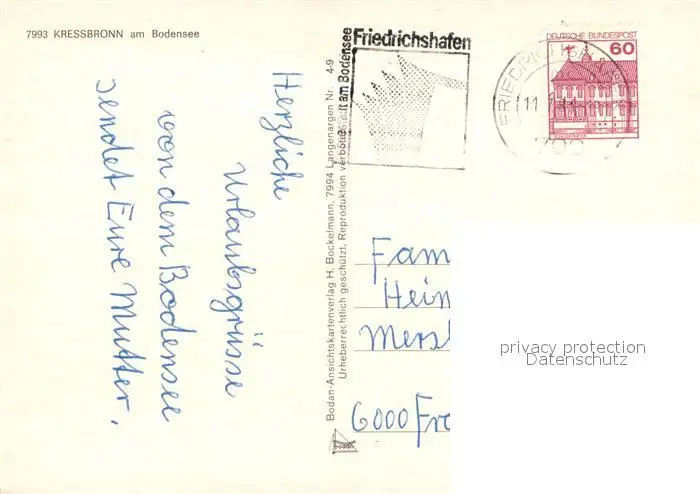 7993 KRESSBRONN am Bodensee
Herzliche
Urlaubsgrüsse
von dem Bodensee
sendet Eure Mutter.
Bodan-Ansichtskartenverlag H. Bockelmann, 7994 Langenargen Nr. 4-9
Urheberrechtlich geschützt, Reproduktion verboten
am Bodensee
Friedrichshafen
DEUTSCHE BUNDESPOST
60
FRIEDRICHSHA
11
Fam
Hein
6000 Fra
privacy protection
Datenschutz